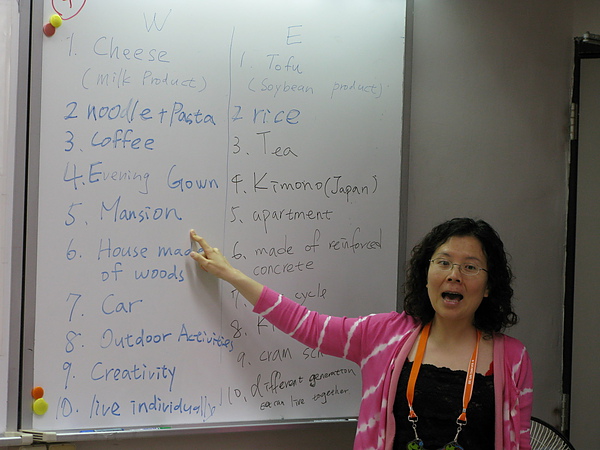 W
1. Cheese
(Milk Product)
2 noodle + Pasta
3. Coffee
4. Evening Gown
5. Mansion
6. House made
of woods
7. Car
8. Outdoor Activities
9. Creativity
10. live individually
E
1. Tofu
(Soybean product)
2 rice
3. Tea
4. Kimono (Japan)
5. apartment
6. made of reinforced
concrete
7. cycle
8.
9. cram
10. different generation
live together.